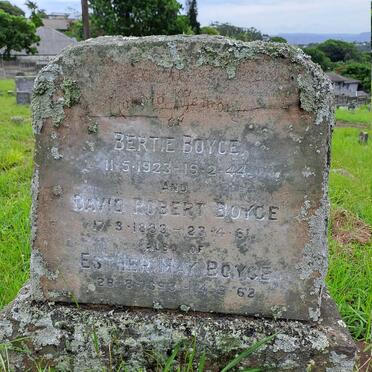 In Loving Memory
OF
BERTIE BOYCE
11·5·1923 – 19·2·44
AND
DAVID ROBERT BOYCE
23·4·61
ALSO OF
ESTHER MAY BOYCE
62